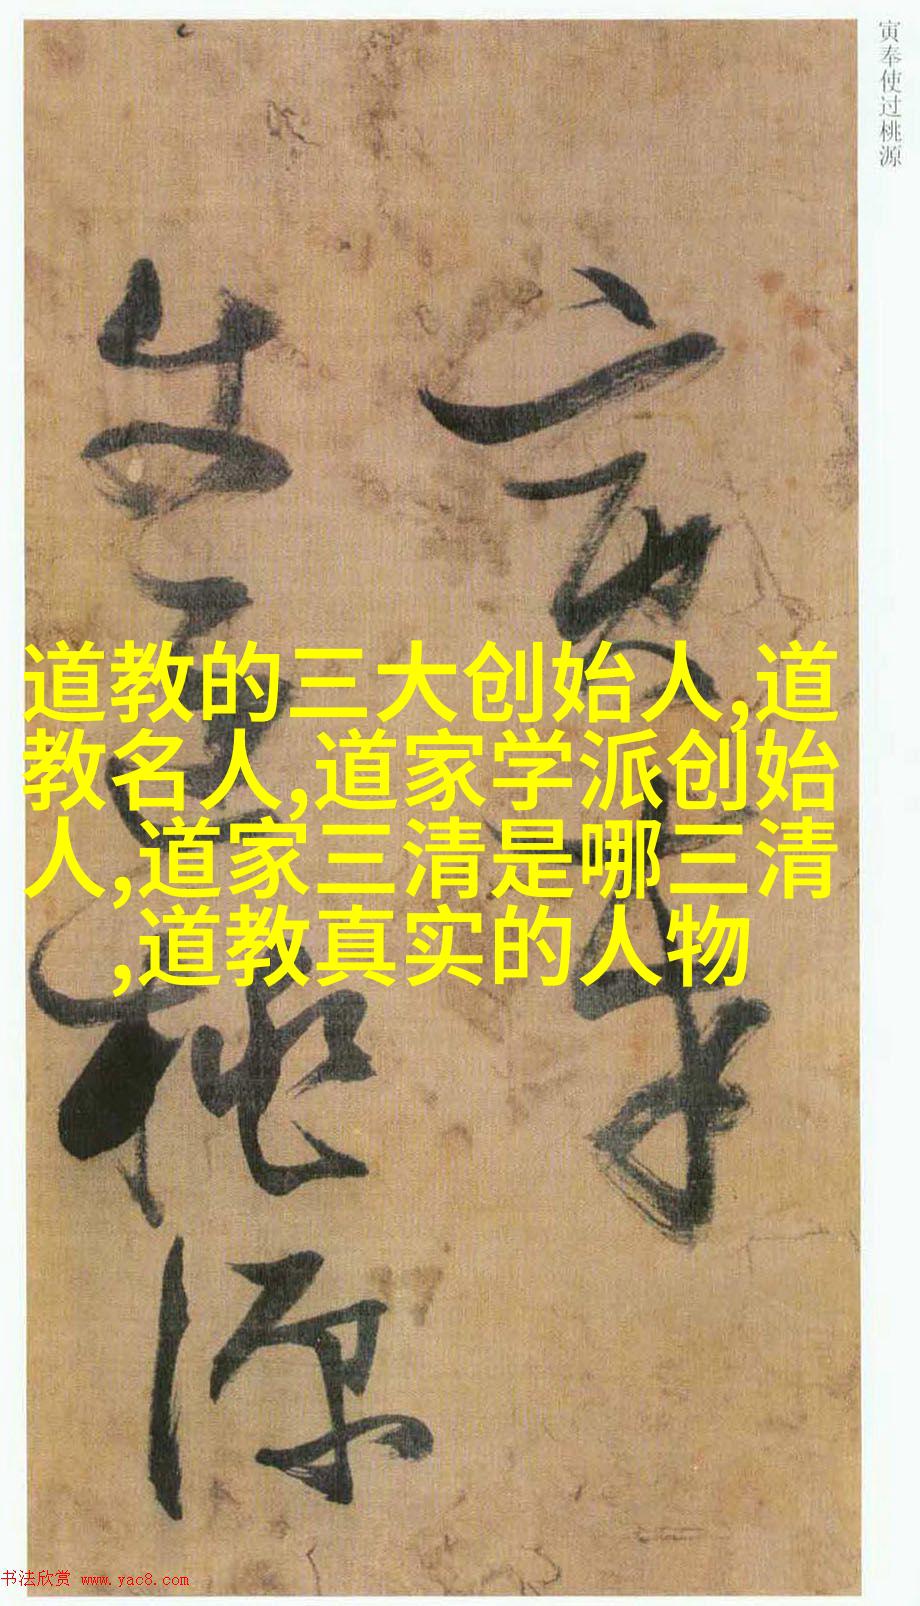 寅奉使过桃源
寅奉
使过桃源
道教的三大创始人,道
教名人,道家学派创始
人,道家三清是哪三清
,道教真实的人物
书法欣赏 www.yac8.com